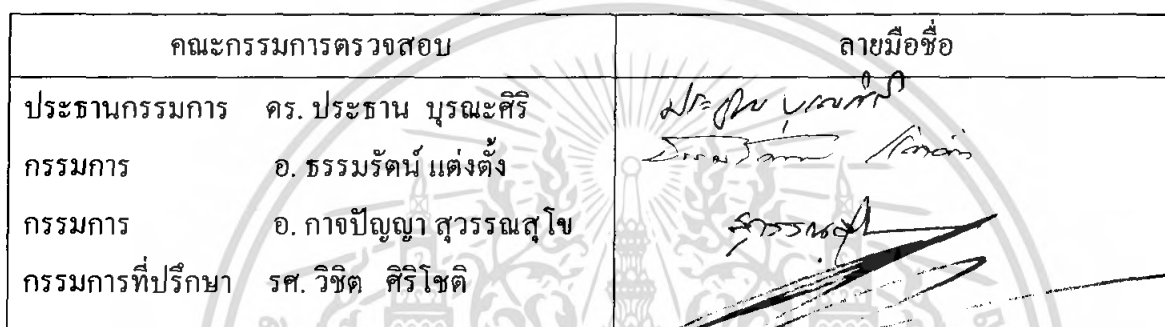 คณะกรรมการตรวจสอบ ลายมือชื่อ
ประธานกรรมการ ดร. ประธาน บุรณะศิริ ประธาน บุรณะศิริ
กรรมการ อ. ธรรมรัตน์ แต่งตั้ง ธรรมรัตน์ แต่งตั้ง
กรรมการ อ. กาจปัญญา สุวรรณสุโข
กรรมการที่ปรึกษา รศ. วิชิต ศิริโชติ